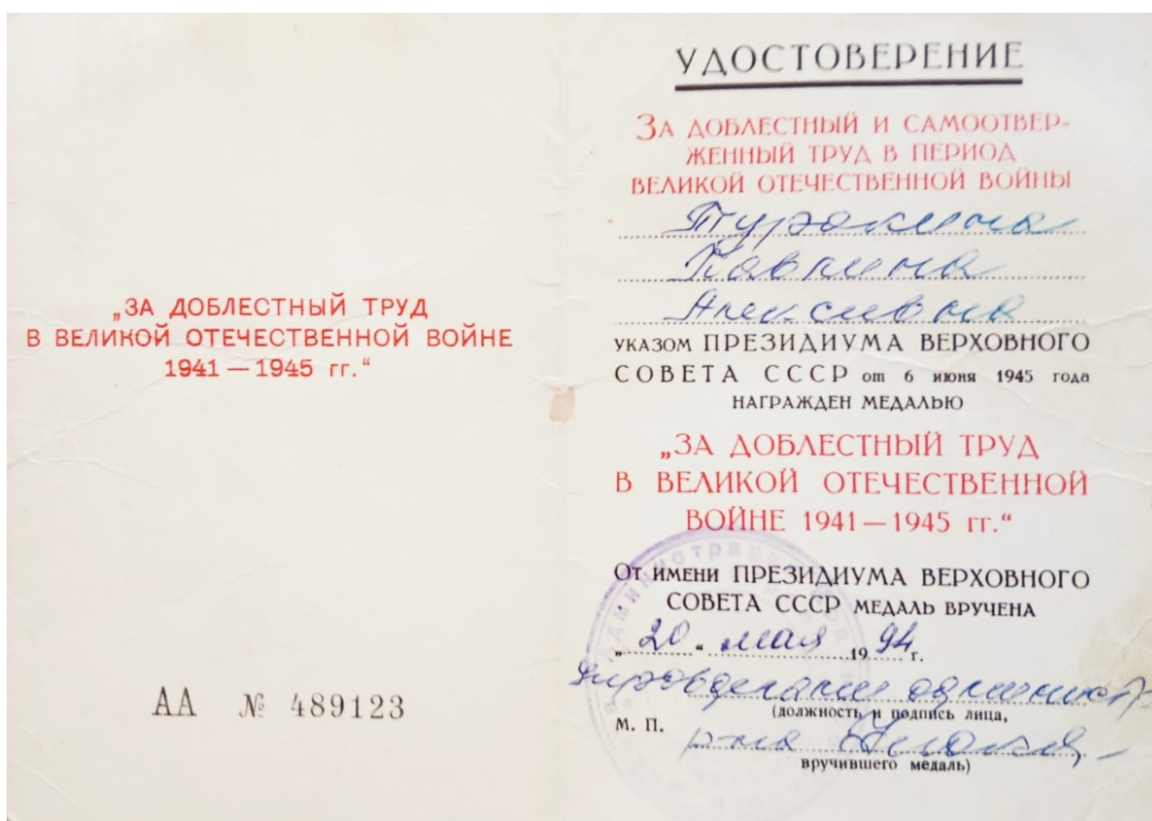 „ЗА ДОБЛЕСТНЫЙ ТРУД
В ВЕЛИКОЙ ОТЕЧЕСТВЕННОЙ ВОЙНЕ
1941 — 1945 гг.“
АА № 489123
УДОСТОВЕРЕНИЕ
ЗА ДОБЛЕСТНЫЙ И САМООТВЕР-
ЖЕННЫЙ ТРУД В ПЕРИОД
ВЕЛИКОЙ ОТЕЧЕСТВЕННОЙ ВОЙНЫ
Туракина
УКАЗОМ ПРЕЗИДИУМА ВЕРХОВНОГО
СОВЕТА СССР от 6 июня 1945 года
НАГРАЖДЕН МЕДАЛЬЮ
„ЗА ДОБЛЕСТНЫЙ ТРУД
В ВЕЛИКОЙ ОТЕЧЕСТВЕННОЙ
ВОЙНЕ 1941 — 1945 гг.“
ОТ ИМЕНИ ПРЕЗИДИУМА ВЕРХОВНОГО
СОВЕТА СССР МЕДАЛЬ ВРУЧЕНА
„20“ мая 1994 г.
(должность и подпись лица,
М. П.
вручившего медаль)